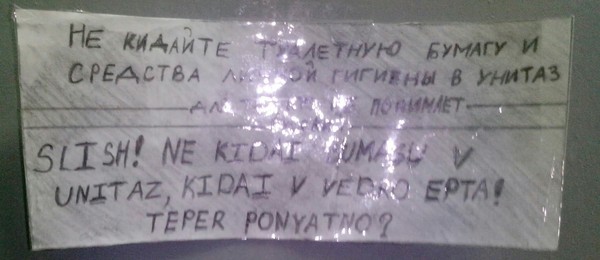 НЕ КИДАЙТЕ ТУАЛЕТНУЮ БУМАГУ И
СРЕДСТВА ЛИЧНОЙ ГИГИЕНЫ В УНИТАЗ
ДЛЯ ТЕХ КТО НЕ ПОНИМАЕТ
SLISH! NE KIDAI BUMAGU V
UNITAZ, KIDAI V VEDRO EPTA!
TEPER PONYATNO?